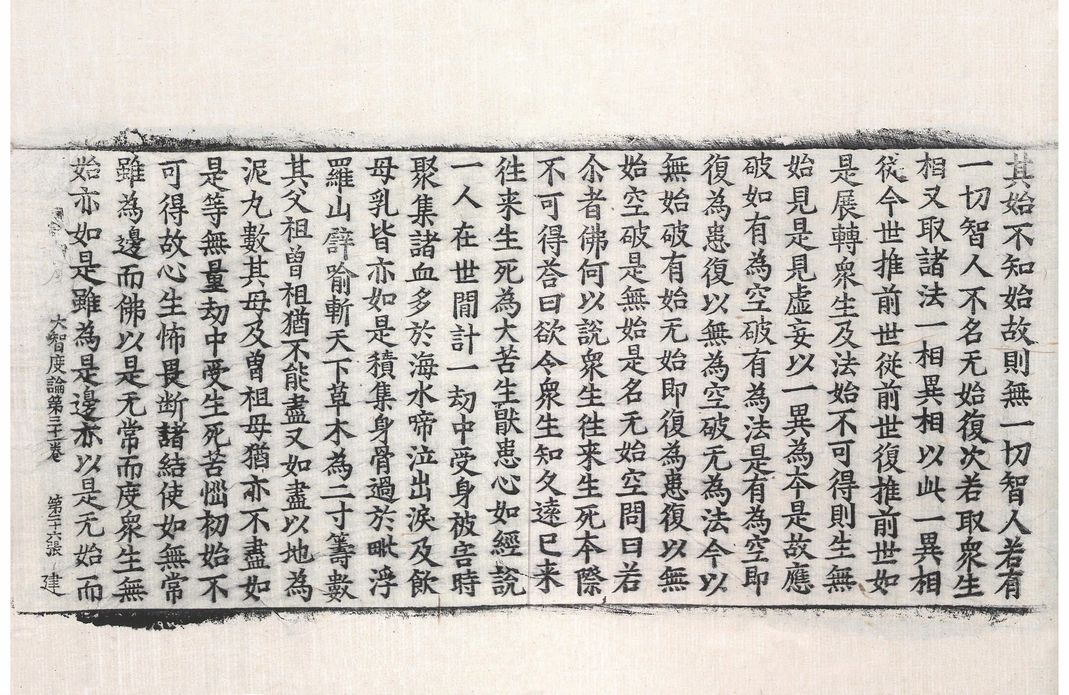 其始不知始故則無一切智人若有
一切智人不名无始復次若取衆生
相又取諸法一相異相以此一異相
從今世推前世從前世復推前世如
是展轉衆生及法始不可得則生無
始見是見虛妄以一異為夲是故應
破如有為空破有為法是有為空即
復為患復以無為空破无為法今以
無始破有始无始即復為患復以無
始空破是無始是名无始空問曰若
尒者佛何以說衆生往来生死本際
不可得荅曰欲令衆生知久遠已来
往来生死為大苦生猒患心如經說
一人在世間計一劫中受身被害時
聚集諸血多於海水啼泣出淚及飲
母乳皆亦如是積集身骨過於毗浮
羅山譬喻斬天下草木為二寸籌數
其父祖曾祖猶不能盡又如盡以地為
泥丸數其母及曾祖母猶亦不盡如
是等無量劫中受生死苦惱初始不
可得故心生怖畏断諸結使如無常
雖為邊而佛以是无常而度衆生無
始亦如是雖為是邊亦以是无始而
大智度論第三十一卷 第二十六張 建